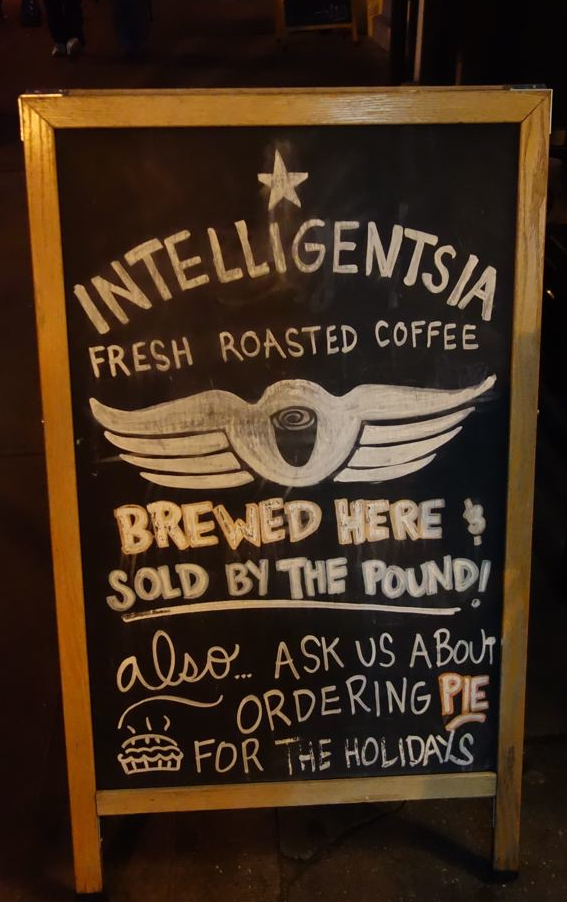 INTELLIGENTSIA
FRESH ROASTED COFFEE
BREWED HERE &
SOLD BY THE POUND!
also... ASK US ABOUT
ORDERING PIE
FOR THE HOLIDAYS